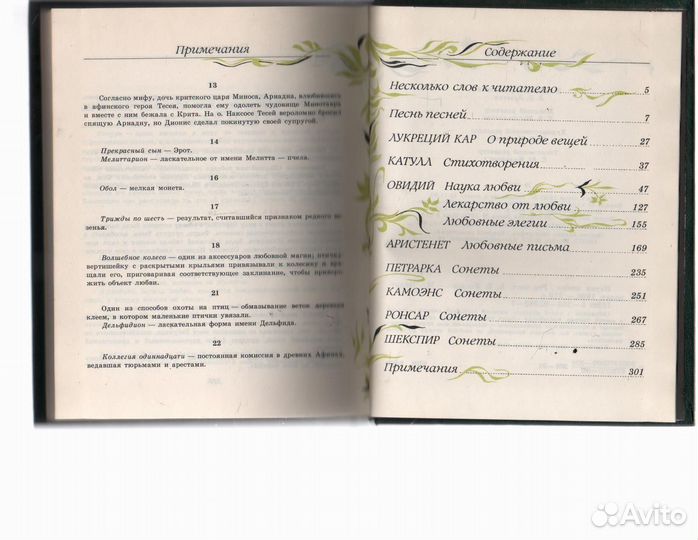 Примечания
13
Согласно мифу, дочь критского царя Миноса, Ариадна, влюбившись
в афинского героя Тесея, помогла ему одолеть чудовище Минотавра
и вместе с ним бежала с Крита. На о. Наксосе Тесей вероломно бросил
спящую Ариадну, но Дионис сделал покинутую своей супругой.
14
Прекрасный сын — Эрот.
Мелиттарион — ласкательное от имени Мелитта — пчела.
16
Обол — мелкая монета.
17
Трижды по шесть — результат, считавшийся признаком редкого ве-
зенья.
18
Волшебное колесо — один из аксессуаров любовной магии; птичку
вертишейку с раскрытыми крыльями привязывали к колесику и вра-
щали его, приговаривая соответствующее заклинание, чтобы приворо-
жить объект любви.
21
Один из способов охоты на птиц — обмазывание веток деревьев
клеем, в котором маленькие птички увязали.
Дельфидион — ласкательная форма имени Дельфида.
22
Коллегия одиннадцати — постоянная комиссия в древних Афинах,
ведавшая тюрьмами и арестами.
Содержание
Несколько слов к читателю 5
Песнь песней 7
ЛУКРЕЦИЙ КАР О природе вещей 27
КАТУЛЛ Стихотворения 37
ОВИДИЙ Наука любви 47
Лекарство от любви 127
Любовные элегии 155
АРИСТЕНЕТ Любовные письма 169
ПЕТРАРКА Сонеты 235
КАМОЭНС Сонеты 251
РОНСАР Сонеты 267
ШЕКСПИР Сонеты 285
Примечания 301
Avito